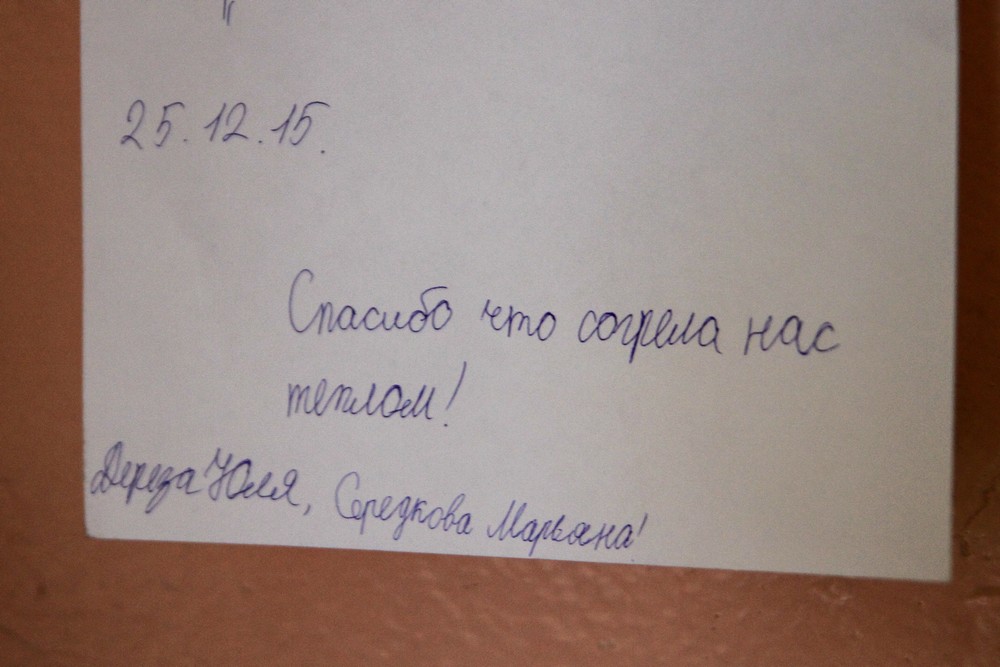 25.12.15.
Спасибо что согрела нас
теплом!
Дереза Юля, Середкова Марьяна!